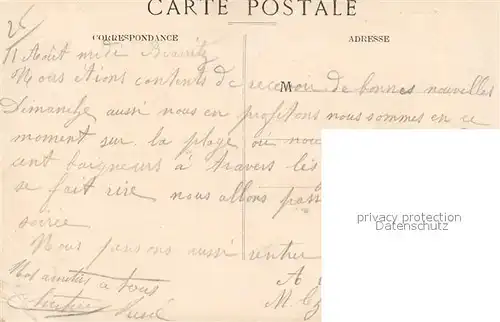 CARTE POSTALE
CORRESPONDANCE
ADRESSE
11 Août midi Biarritz
Nous étions contents de recevoir de bonnes nouvelles
M
Dimanche aussi nous en profitons nous sommes en ce
moment sur la plage où nou
cent baigneurs à travers les
se fait rire nous allons pass
soirée
Nous pensons aussi rentrer
Nos amitiés à tous
A
M.
privacy protection